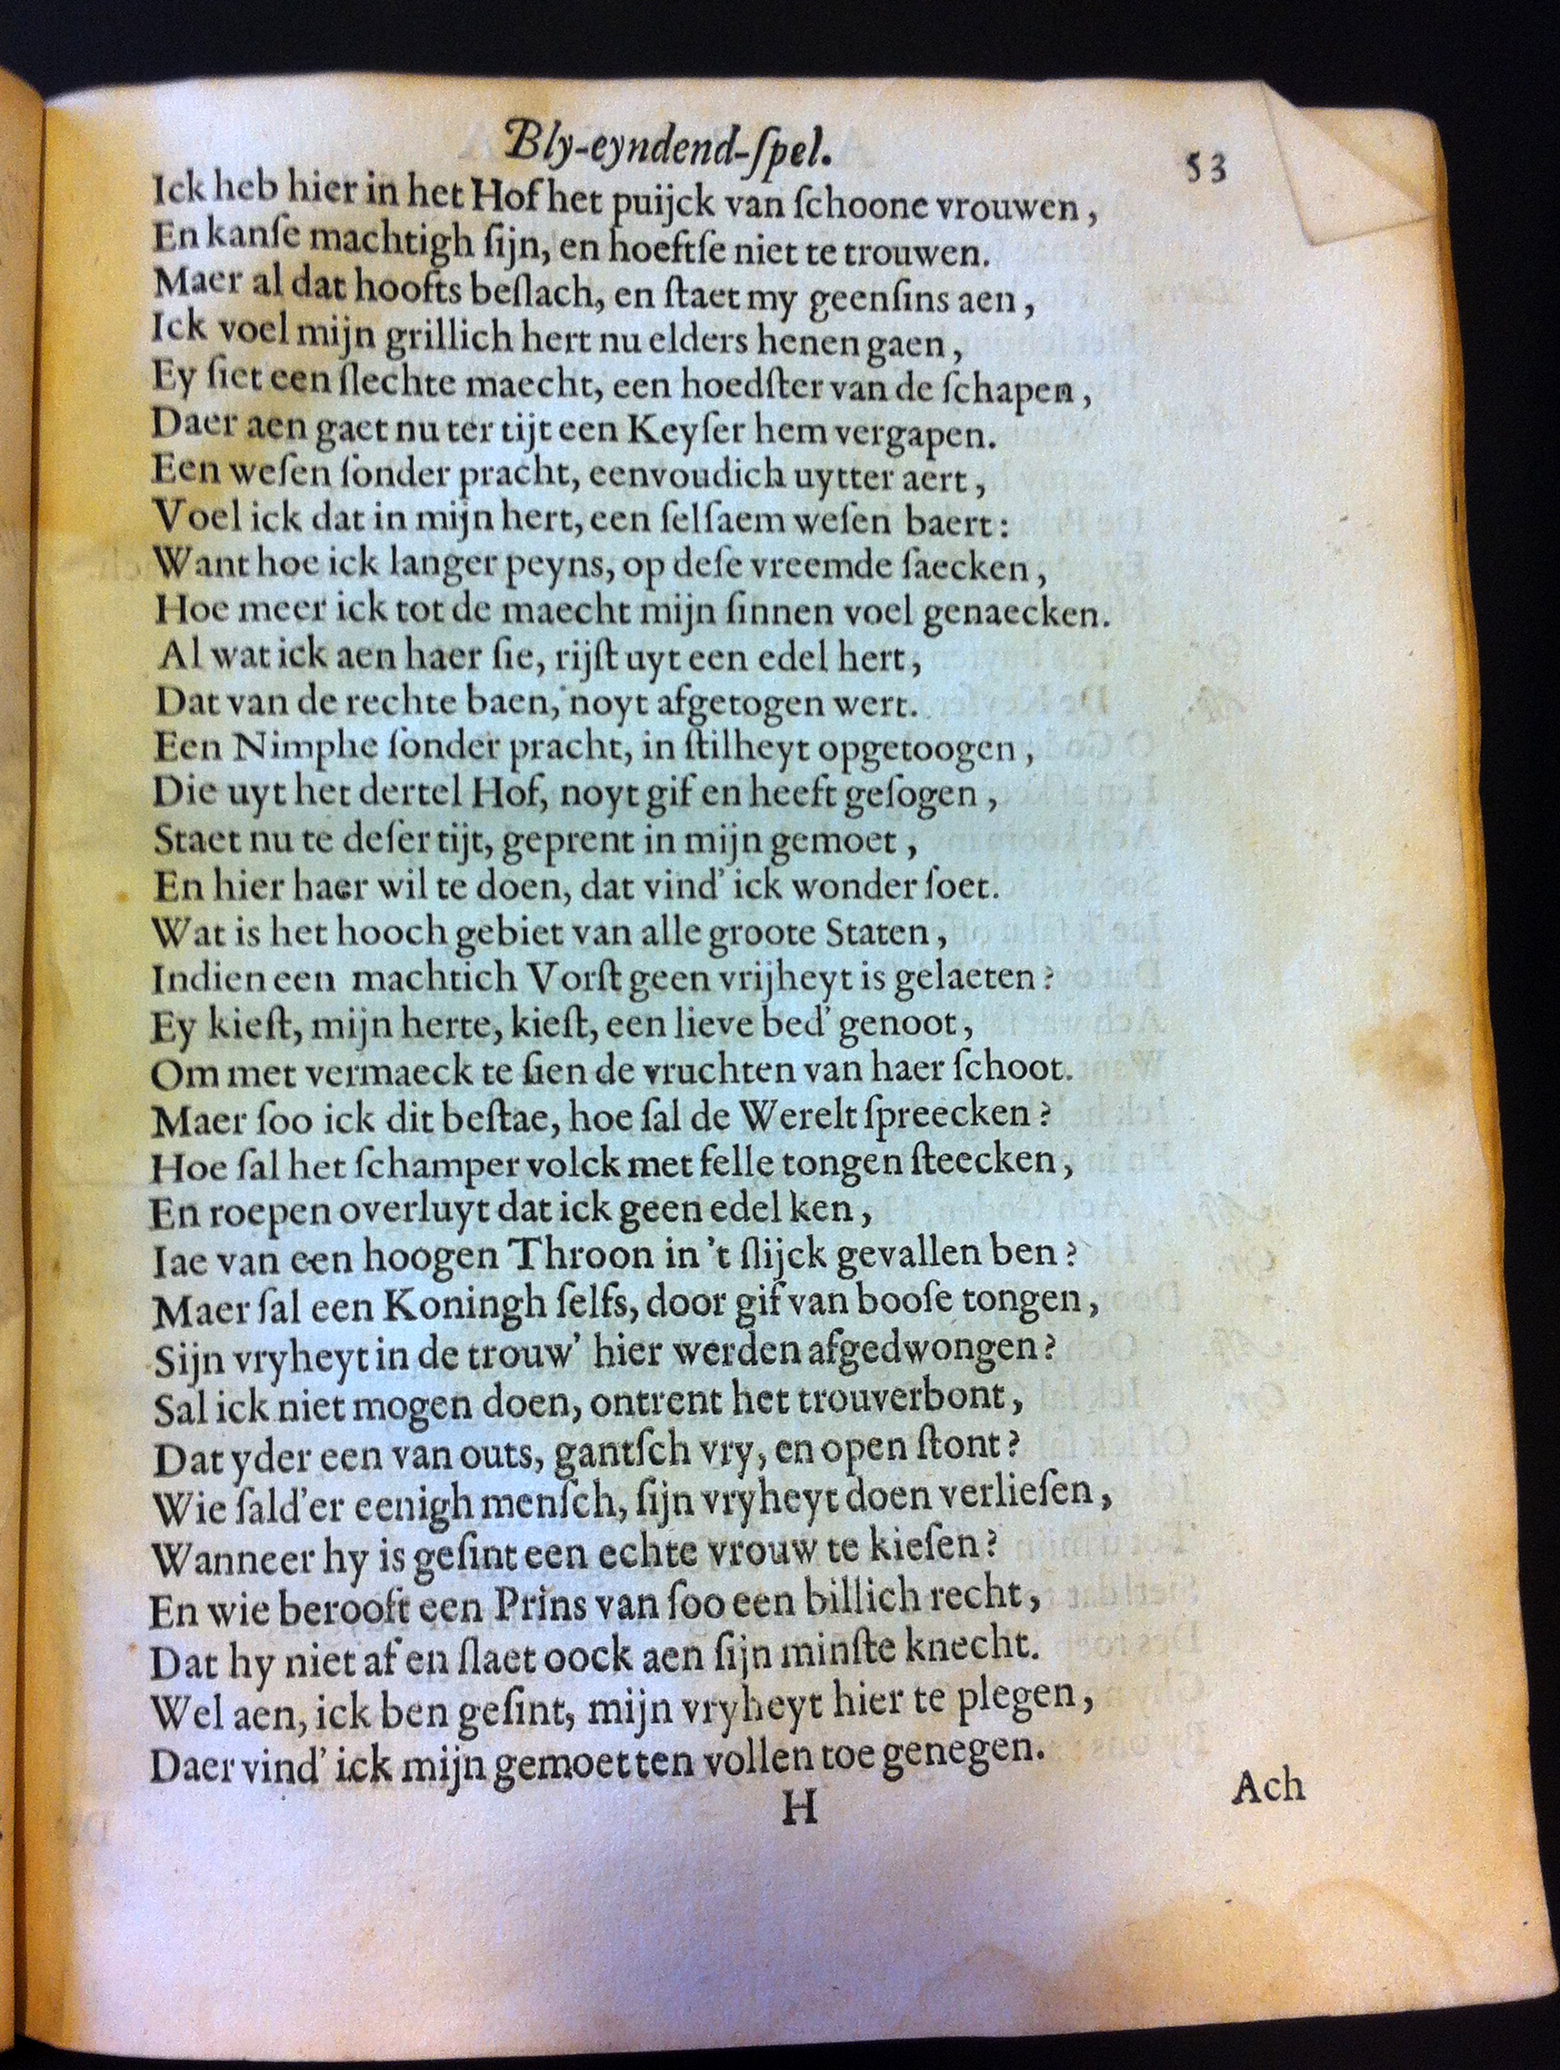 Bly-eyndend-ſpel.
53
Ick heb hier in het Hof het puijck van ſchoone vrouwen,
En kanſe machtigh ſijn, en hoeftſe niet te trouwen.
Maer al dat hoofts beſlach, en ſtaet my geenſins aen,
Ick voel mijn grillich hert nu elders henen gaen,
Ey ſiet een ſlechte maecht, een hoedſter van de ſchapen,
Daer aen gaet nu ter tijt een Keyſer hem vergapen.
Een weſen ſonder pracht, eenvoudich uytter aert,
Voel ick dat in mijn hert, een ſelſaem weſen baert:
Want hoe ick langer peyns, op deſe vreemde ſaecken,
Hoe meer ick tot de maecht mijn ſinnen voel genaecken.
Al wat ick aen haer ſie, rijſt uyt een edel hert,
Dat van de rechte baen, noyt afgetogen wert.
Een Nimphe ſonder pracht, in ſtilheyt opgetoogen,
Die uyt het dertel Hof, noyt gif en heeft geſogen,
Staet nu te deſer tijt, geprent in mijn gemoet,
En hier haer wil te doen, dat vind' ick wonder ſoet.
Wat is het hooch gebiet van alle groote Staten,
Indien een machtich Vorſt geen vrijheyt is gelaeten?
Ey kieſt, mijn herte, kieſt, een lieve bed' genoot,
Om met vermaeck te ſien de vruchten van haer ſchoot.
Maer ſoo ick dit beſtae, hoe ſal de Werelt ſpreecken?
Hoe ſal het ſchamper volck met felle tongen ſteecken,
En roepen overluyt dat ick geen edel ken,
Iae van een hoogen Throon in 't ſlijck gevallen ben?
Maer ſal een Koningh ſelfs, door gif van booſe tongen,
Sijn vryheyt in de trouw' hier werden afgedwongen?
Sal ick niet mogen doen, ontrent het trouverbont,
Dat yder een van outs, gantſch vry, en open ſtont?
Wie ſald'er eenigh menſch, ſijn vryheyt doen verlieſen,
Wanneer hy is geſint een echte vrouw te kieſen?
En wie berooft een Prins van ſoo een billich recht,
Dat hy niet af en ſlaet oock aen ſijn minſte knecht.
Wel aen, ick ben geſint, mijn vryheyt hier te plegen,
Daer vind' ick mijn gemoet ten vollen toe genegen.
H
Ach